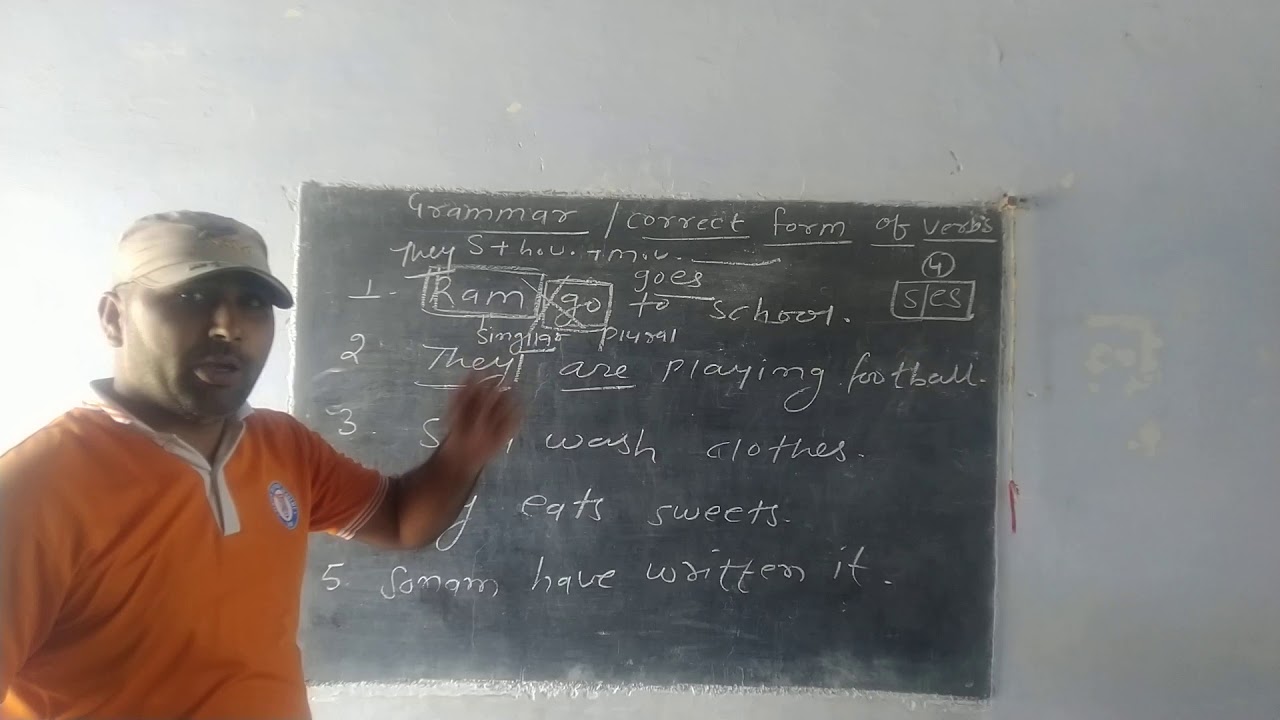 Grammar / correct form of verbs
They S + h.v. + m.v. ____
4
goes
1. Ram go to school. s/es
Singular Plural
2 They are playing football.
3. wash clothes.
eats sweets.
5. Sonam have written it.